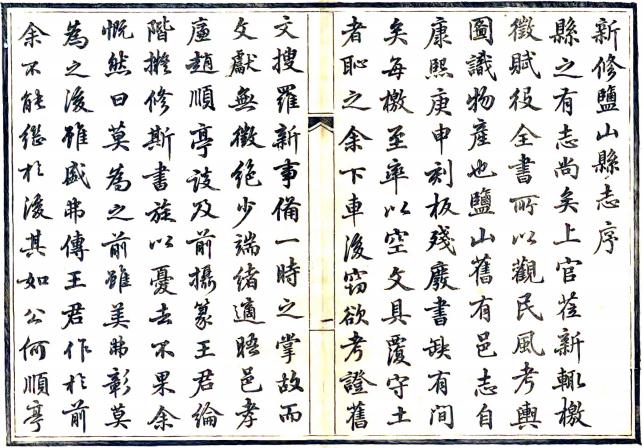 新修鹽山縣志序
縣之有志尚矣上官莅新輒檄
徵賦役全書所以觀民風考輿
圖識物產也鹽山舊有邑志自
康熙庚申刻板殘廢書缺有間
矣每檄至率以空文具覆守土
者恥之余下車後竊欲考證舊
一
文搜羅新事備一時之掌故而
文獻無徵絕少端緒適晤邑孝
廉趙順亭談及前攝篆王君綸
階擬修斯書旋以憂去不果余
慨然曰莫為之前雖美弗彰莫
為之後雖盛弗傳王君作於前
余不能繼於後其如公何順亭